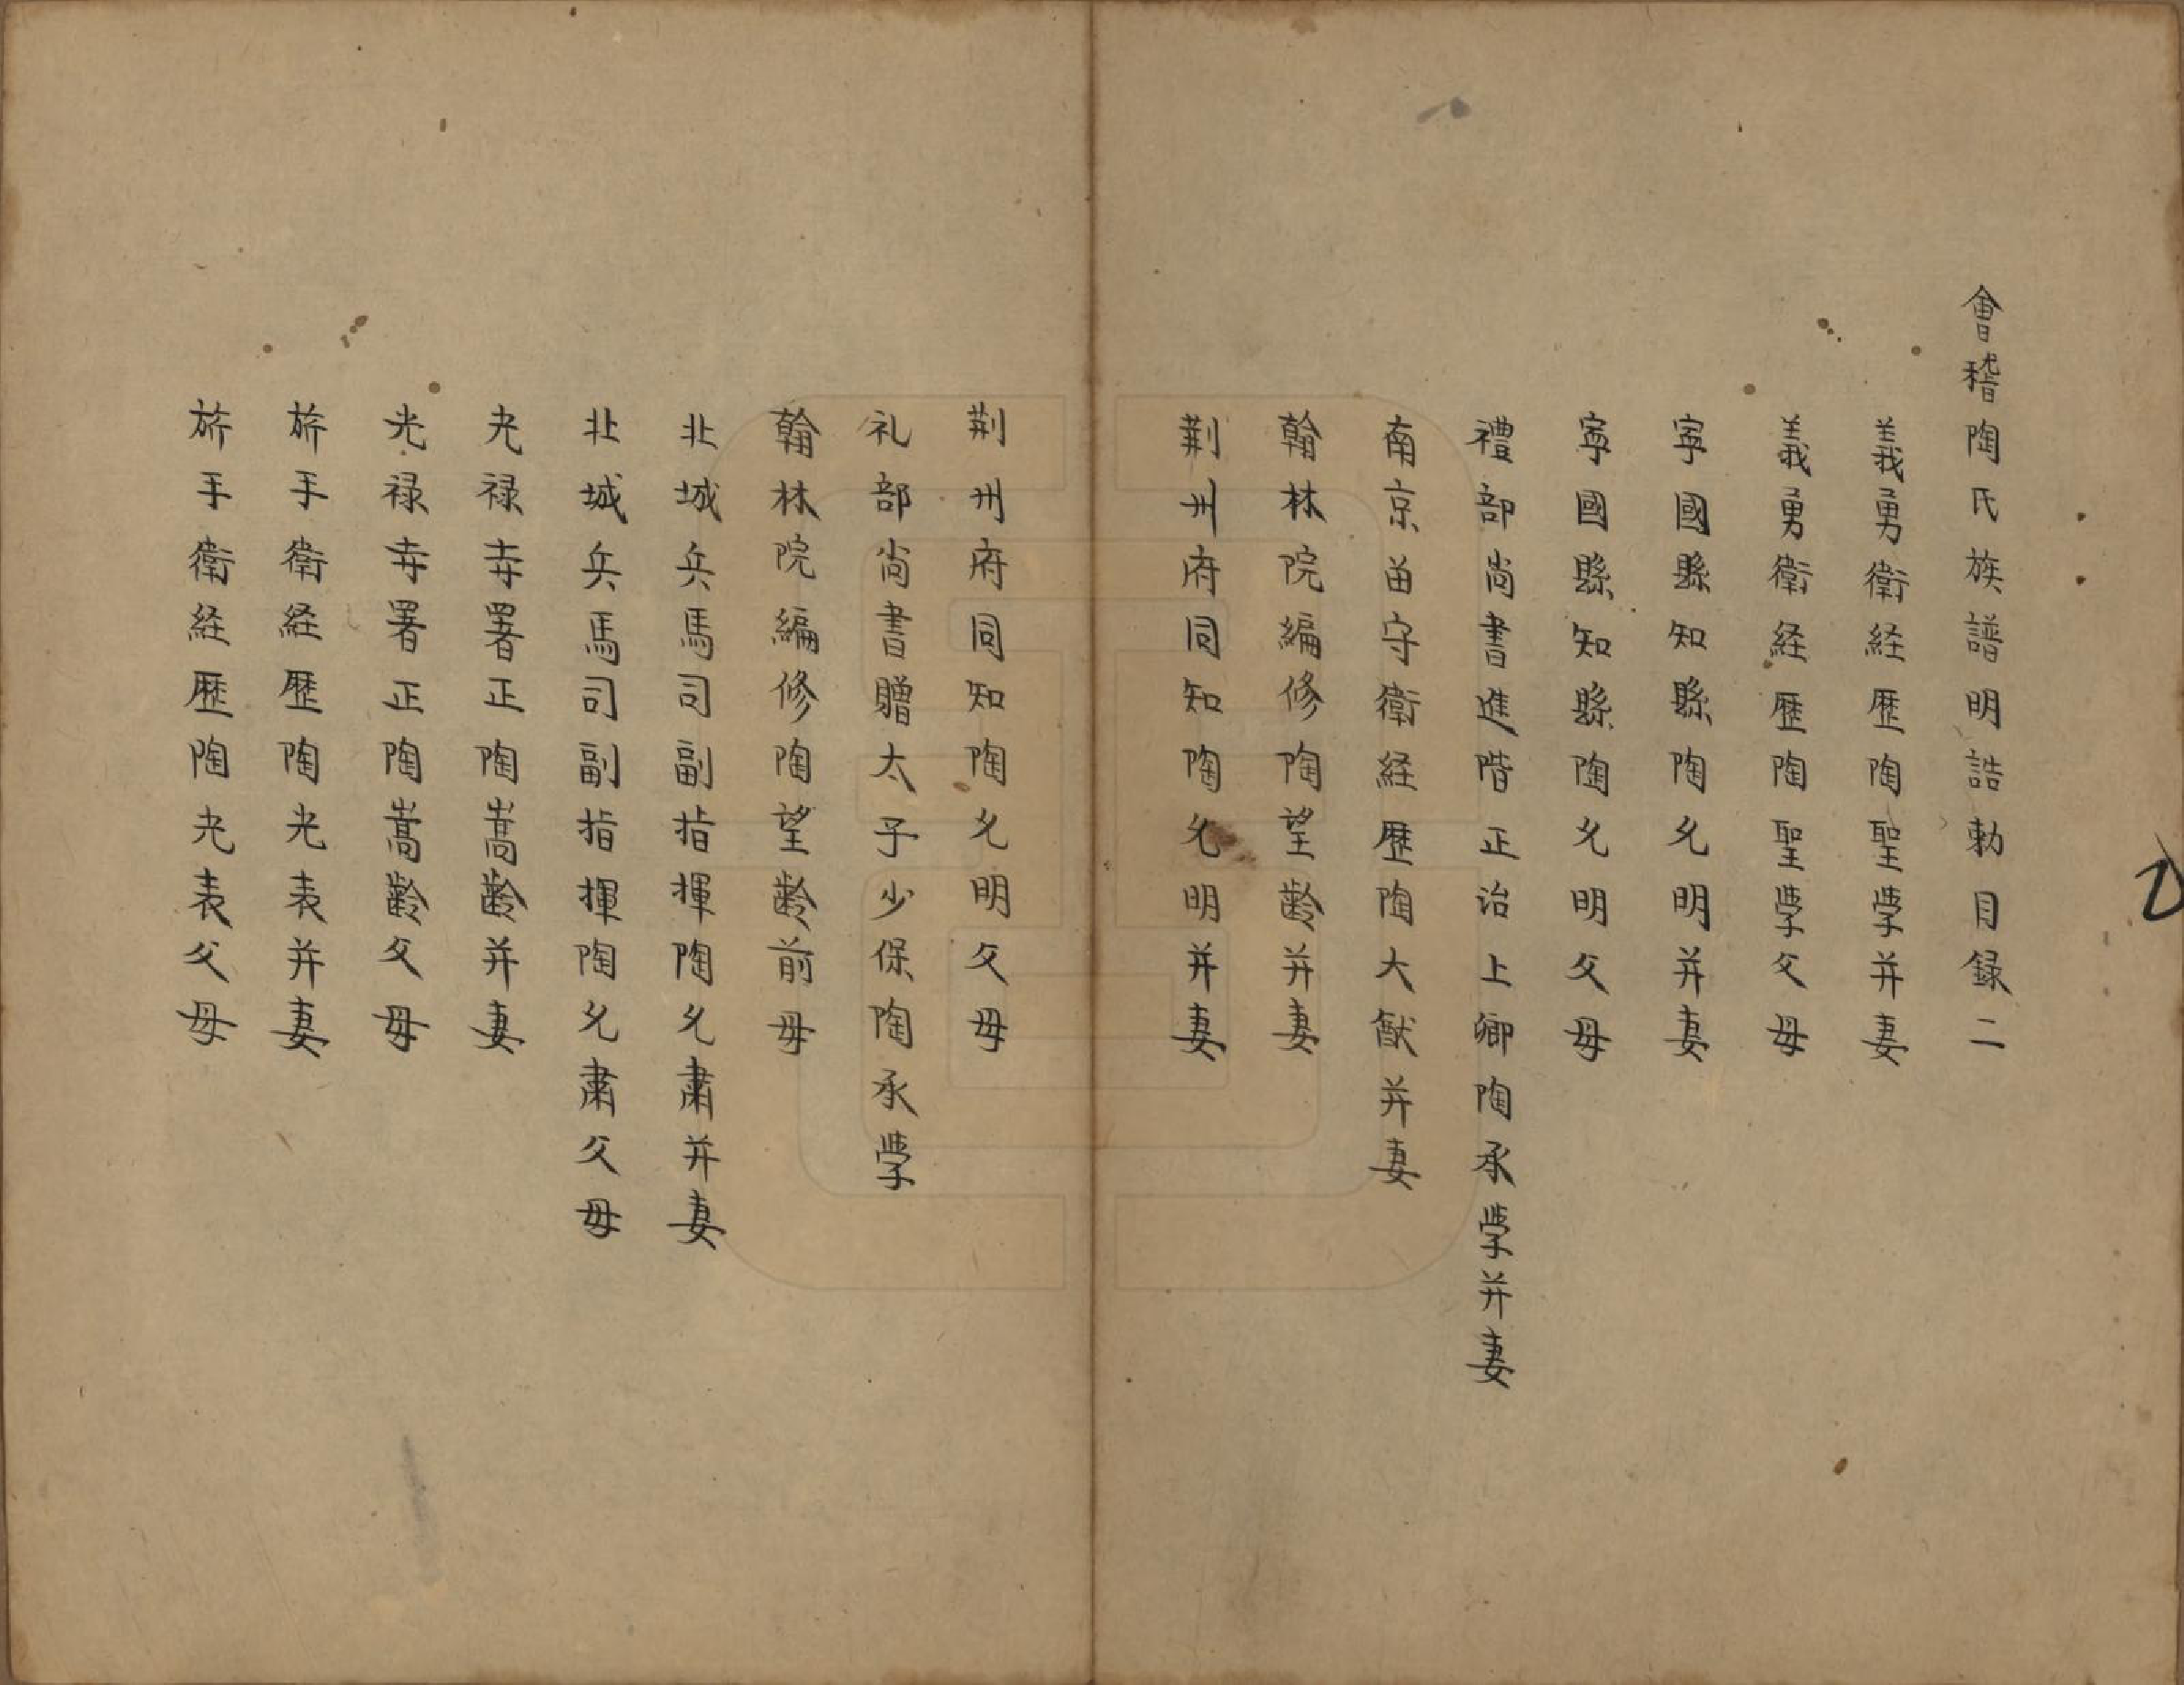 會稽陶氏族譜明誥勅目録二
義勇衛経歷陶聖學并妻
義勇衛経歷陶聖學父母
寧國縣知縣陶允明并妻
寧國縣知縣陶允明父母
禮部尚書進階正治上卿陶承學并妻
南京留守衛経歷陶大猷并妻
翰林院編修陶望齡并妻
荆州府同知陶允明并妻
荆州府同知陶允明父母
礼部尚書贈太子少保陶承學
翰林院編修陶望齡前母
北城兵馬司副指揮陶允肅并妻
北城兵馬司副指揮陶允肅父母
光禄寺署正陶嵩齡并妻
光禄寺署正陶嵩齡父母
旂手衛経歷陶光表并妻
旂手衛経歷陶光表父母